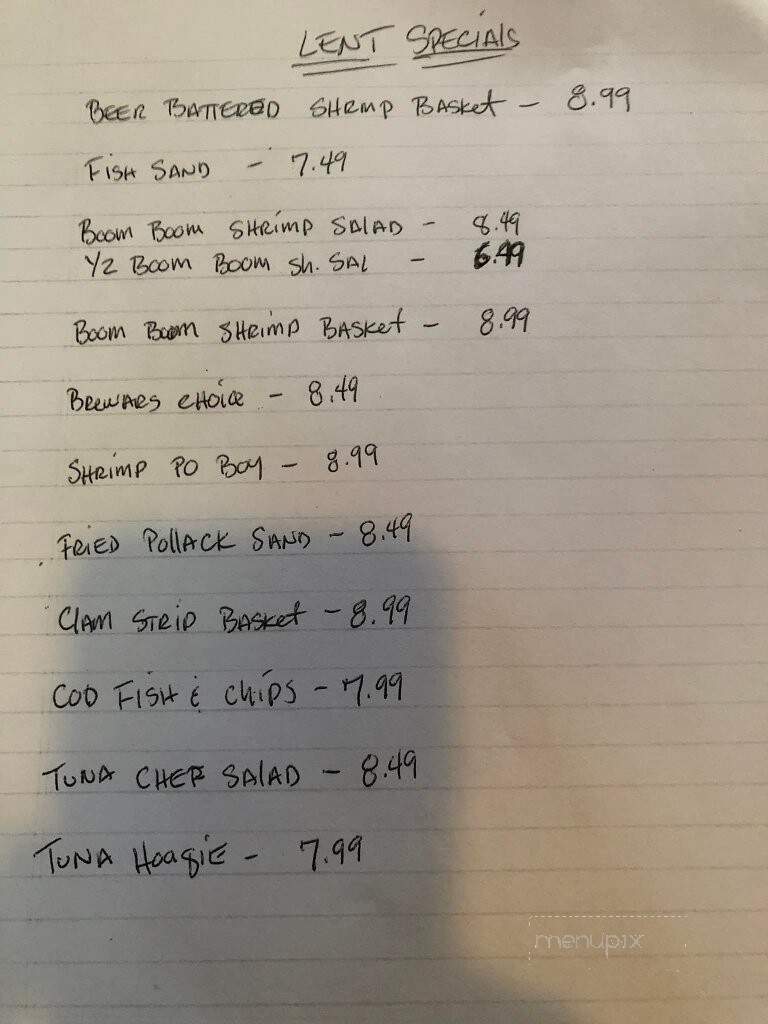 LENT SPECIALS
BEER BATTERED SHRMP BASKET - 8.99
FISH SAND - 7.49
BOOM BOOM SHRIMP SALAD - 8.49
1/2 BOOM BOOM SH. SAL - 6.49
BOOM BOOM SHRIMP BASKET - 8.99
CHOICE - 8.49
SHRIMP PO BOY - 8.99
FRIED POLLACK SAND - 8.49
CLAM STRIP BASKET - 8.99
COD FISH & CHIPS - 7.99
TUNA CHEF SALAD - 8.49
TUNA HOAGIE - 7.99
menupix